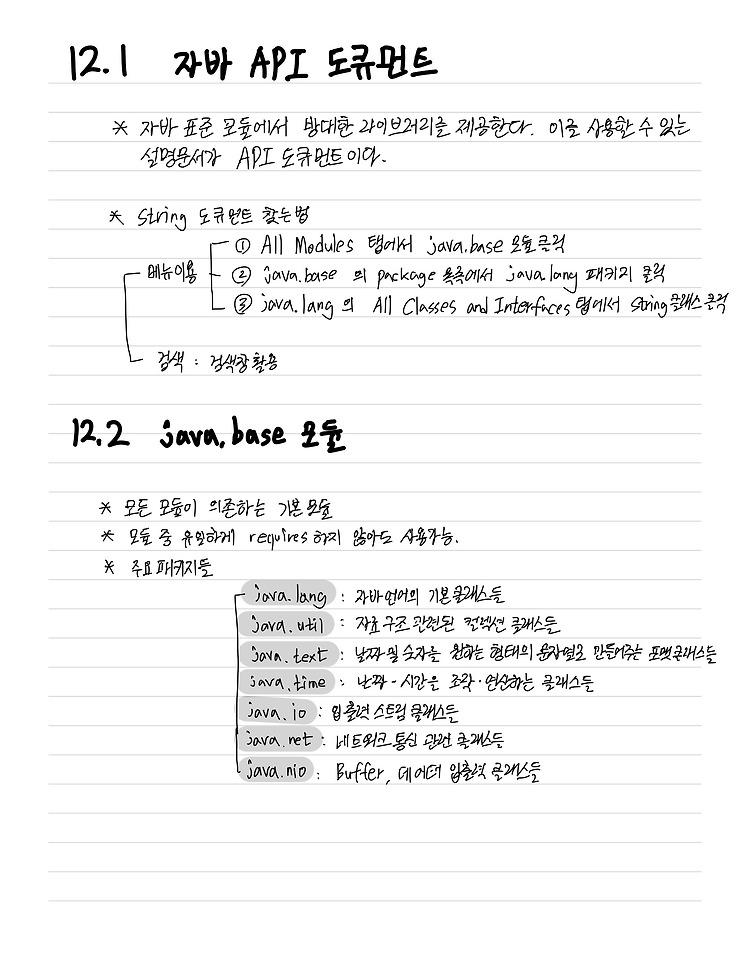 12.1 자바 API 도큐먼트
* 자바 표준 모듈에서 방대한 라이브러리를 제공한다. 이를 사용할 수 있는
설명문서가 API 도큐먼트이다.
* String 도큐먼트 찾는법
메뉴이용
① All Modules 탭에서 java.base 모듈클릭
② java.base 의 package 목록에서 java.lang 패키지 클릭
③ java.lang 의 All Classes and Interfaces 탭에서 String클래스 클릭
검색 : 검색창 활용
12.2 java.base 모듈
* 모든 모듈이 의존하는 기본모듈
* 모듈 중 유일하게 requires 하지 않아도 사용가능.
* 주요 패키지들
java.lang : 자바언어의 기본클래스들
java.util : 자료 구조 관련된 컬렉션 클래스들
java.text : 날짜 및 숫자를 원하는 형태의 문자열로 만들어주는 포맷클래스들
java.time : 날짜·시간을 조작·연산하는 클래스들
java.io : 입출력 스트림 클래스들
java.net : 네트워크 통신 관련 클래스들
java.nio : Buffer, 데이터 입출력 클래스들